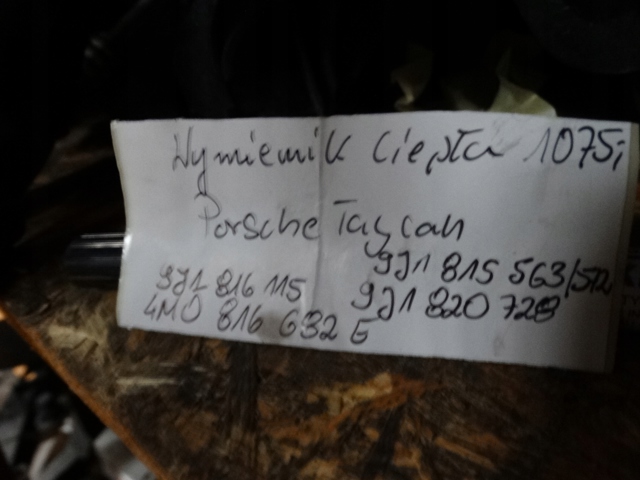 Wymiennik Ciepła 1075;
Porsche Taycan
9J1 815 563/512
9J1 816 115
9J1 820 728
4M0 816 632 E